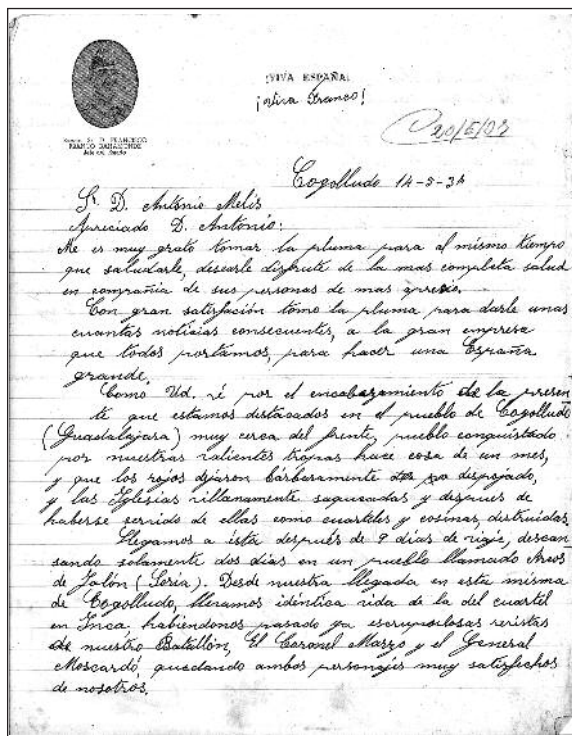 ¡VIVA ESPAÑA!
¡Viva Franco!
Excmo. Sr. D. FRANCISCO
FRANCO BAHAMONDE
Jefe del Estado
20/5/
Cogolludo 14-5-3
Sr. D. Antonio Melis
Apreciado D. Antonio:
Me es muy grato tomar la pluma para al mismo tiempo
que saludarle, desearle disfrute de la mas completa salud
en compañia de sus personas de mas aprecio.
Con gran satisfacción tomo la pluma para darle unas
cuantas noticias consecuentes, a la gran empresa
que todos portamos, para hacer una España
grande.
Como Ud. vé por el encabezamiento de la presen
te que estamos destacados en el pueblo de Cogolludo
(Guadalajara) muy cerca del frente, pueblo conquistado
por nuestras valientes tropas hace cosa de un mes,
y que los rojos dejaron bárbaramente despojado,
y las Iglesias villanamente saqueadas y despues de
haberse servido de ellas como cuarteles y cosinas, destruidas.
Llegamos a ésta después de 9 dias de viaje, descan
sando solamente dos dias en un pueblo llamado Arcos
de Jalón (Soria). Desde nuestra llegada en esta misma
de Cogolludo, llevamos idéntica vida de la del cuartel
en Inca, habiéndonos pasado ya escrupolosas revistas
de nuestro Batallón, El Coronel Marzo y el General
Moscardó, quedando ambos personajes muy satisfechos
de nosotros.